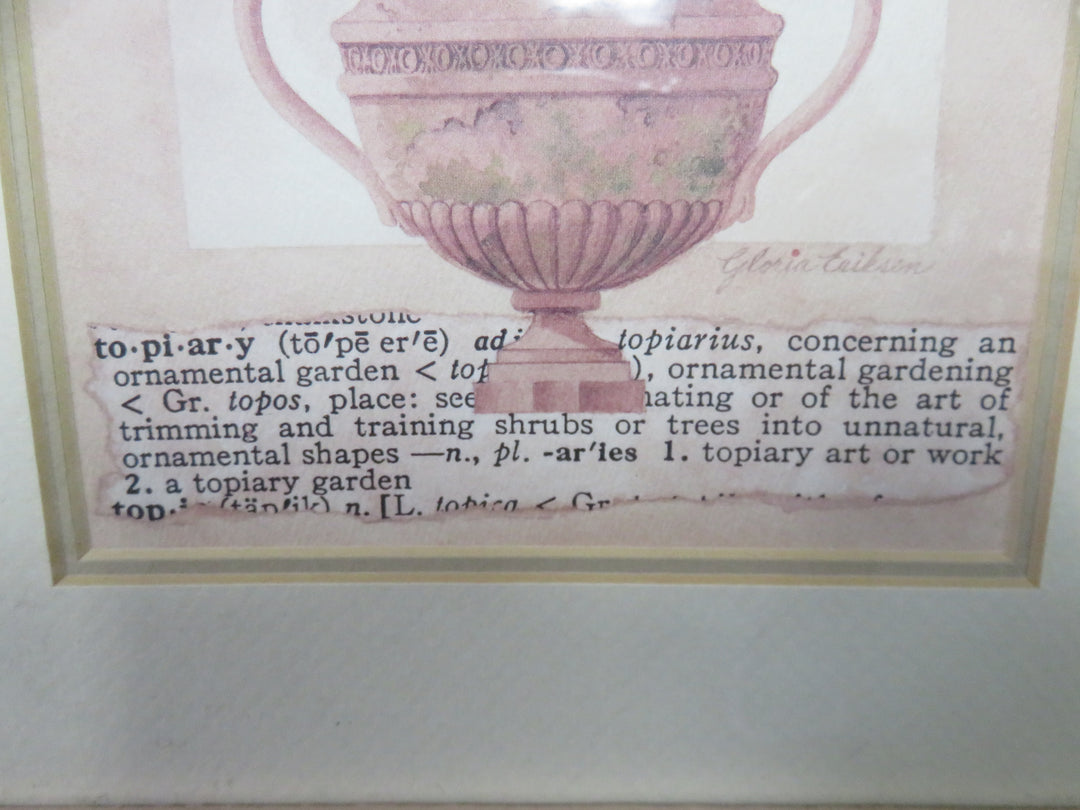 Gloria Eriksen
to·pi·ar·y (tō′pē er′ē) adj topiarius, concerning an
ornamental garden < top ), ornamental gardening
< Gr. topos, place: see nating or of the art of
trimming and training shrubs or trees into unnatural,
ornamental shapes —n., pl. -ar′ies 1. topiary art or work
2. a topiary garden
top·i (täp′ik) n. [L. topica < Gr